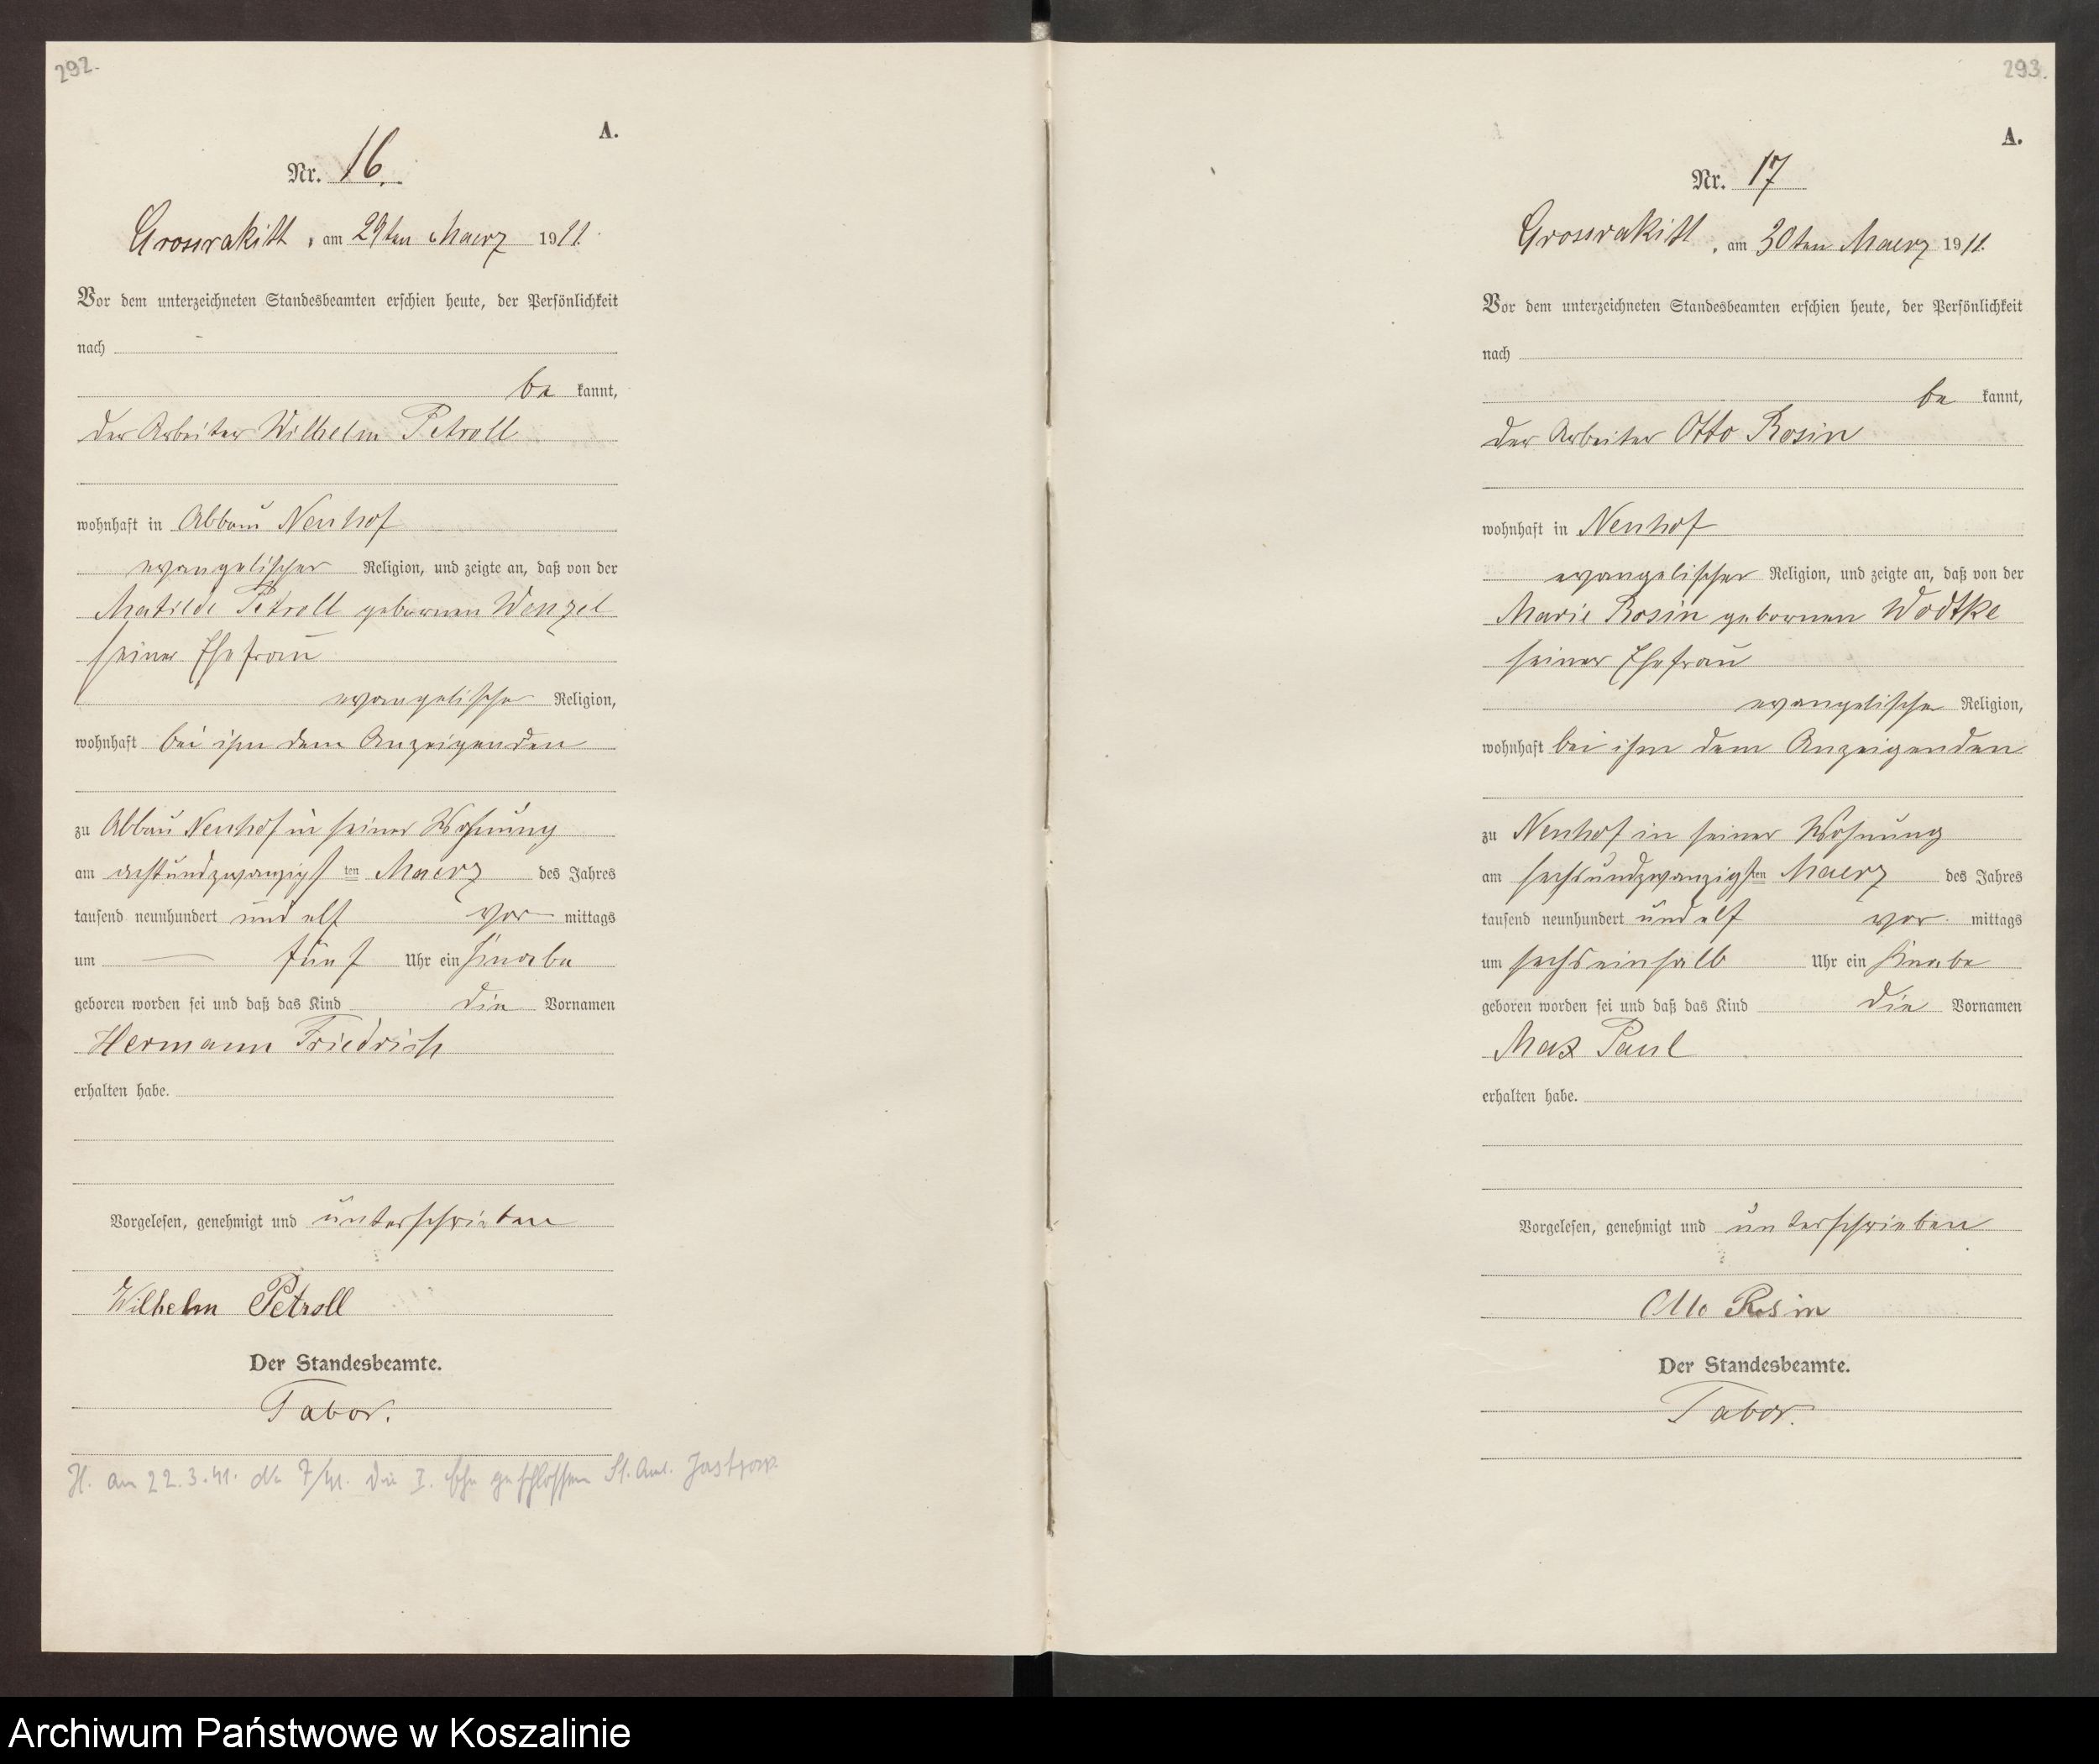 292.
A.
Nr. 16.
Grossrakitt, am 29ten Maerz 1911.
Vor dem unterzeichneten Standesbeamten erschien heute, der Persönlichkeit
nach
be kannt,
der Arbeiter Wilhelm Petroll
wohnhaft in Abbau Neuhof
evangelischer Religion, und zeigte an, daß von der
Matilde Petroll gebornen Wenzel
seiner Ehefrau
evangelische Religion,
wohnhaft bei ihm dem Anzeigenden
zu Abbau Neuhof in seiner Wohnung
am achtundzwanzigsten Maerz des Jahres
tausend neunhundert und elf vor mittags
um — fünf Uhr ein Knabe
geboren worden sei und daß das Kind die Vornamen
Hermann Friedrich
erhalten habe.
Vorgelesen, genehmigt und unterschrieben
Wilhelm Petroll
Der Standesbeamte.
Tabor.
H. am 22.3.41. No 7/41. die I. Ehe geschlossen St. Amt.
293.
A.
Nr. 17
Grossrakitt, am 30ten Maerz 1911.
Vor dem unterzeichneten Standesbeamten erschien heute, der Persönlichkeit
nach
be kannt,
der Arbeiter Otto Rosin
wohnhaft in Neuhof
evangelischer Religion, und zeigte an, daß von der
Marie Rosin gebornen Wodtke
seiner Ehefrau
evangelische Religion,
wohnhaft bei ihm dem Anzeigenden
zu Neuhof in seiner Wohnung
am sechsundzwanzigsten Maerz des Jahres
tausend neunhundert und elf vor mittags
um sechseinhalb Uhr ein Knabe
geboren worden sei und daß das Kind die Vornamen
Max Paul
erhalten habe.
Vorgelesen, genehmigt und unterschrieben
Otto Rosin
Der Standesbeamte.
Tabor.
Archiwum Państwowe w Koszalinie